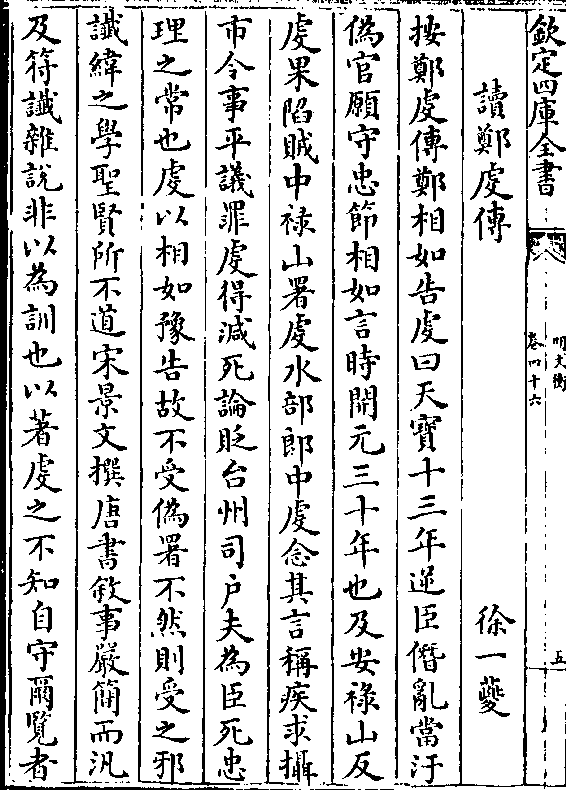 欽定四庫全書
明文衡
卷四十六
五
讀鄭虔傳
徐一夔
按鄭虔傳鄭相如告虔曰天寶十三年逆臣僭亂當汙
偽官願守忠節相如言時開元三十年也及安祿山反
虔果陷賊中祿山署虔水部郎中虔念其言稱疾求攝
市令事平議罪虔得減死論貶台州司戶夫為臣死忠
理之常也虔以相如豫告故不受偽署不然則受之邪
讖緯之學聖賢所不道宋景文撰唐書敘事嚴簡而汎
及符讖雜說非以為訓也以著虔之不知自守爾覽者